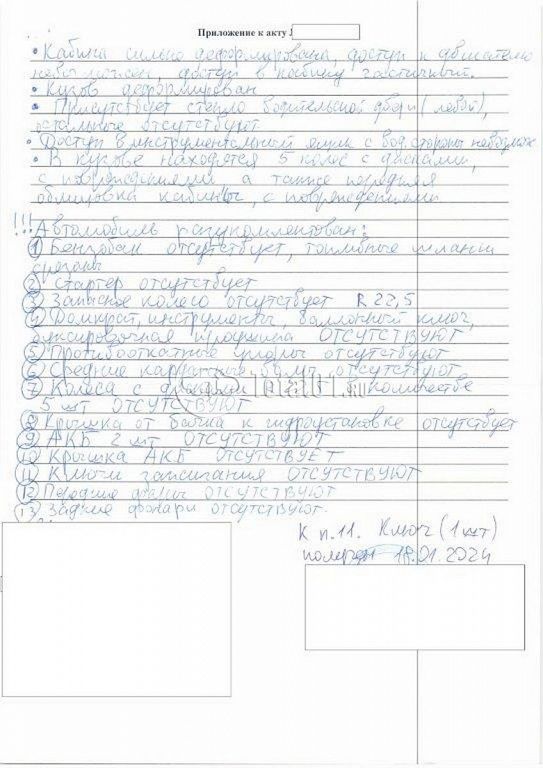 Приложение к акту
• Кабина сильно деформирована, доступ к двигателю
невозможен, доступ в кабину частичный.
• Кузов деформирован
• Присутствует стекло водительской двери (левой),
остальные отсутствуют
• Доступ в инструментальный ящик с вод. стороны невозмож
• В кузове находятся 5 колес с дисками,
с повреждениями, а также передняя
облицовка кабины, с повреждениями
!!! Автомобиль разукомплектован:
1 Бензобак отсутствует, топливные шланги
срезаны
2 Стартер отсутствует
3 Запасное колесо отсутствует R 22,5
4 Домкрат, инструменты, баллонный ключ,
буксировочная проушина ОТСУТСТВУЮТ
5 Противооткатные упоры отсутствуют
6 Средние карданные валы отсутствуют
7 Колеса с дисками количестве
5 шт ОТСУТСТВУЮТ
8 Крышка от бачка к гидроустановке отсутствует
9 АКБ 2 шт ОТСУТСТВУЮТ
10 Крышка АКБ ОТСУТСТВУЕТ
11 Ключи зажигания ОТСУТСТВУЮТ
12 Передние фары ОТСУТСТВУЮТ
13 Задние фонари отсутствуют.
К п.11. Ключ (1 шт)
18.01.2024